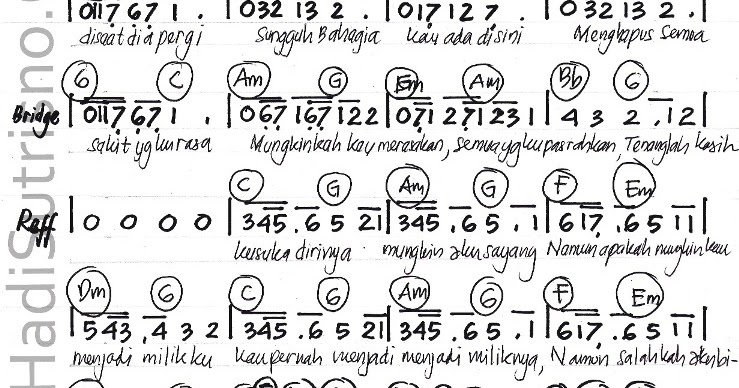 | 0117 67 1 . | 032 13 2 . | 017 12 7 . | 0 32 13 2 . |
disaat dia pergi Sungguh Bahagia kau ada disini Menghapus Semua
G C Am G Em Am Bb G
Bridge | 0117 67 1 . | 067 167 122 | 071 271 231 | 4 3 2 .12 |
Sakit yg kurasa Mungkinkah kau merasakan, semua yg ku pasrahkan, Tenanglah kasih
C G Am G F Em
Reff | 0 0 0 0 | 345 .6 5 21 | 345 .6 5 .1 | 617 .6 5 11 |
kusuka dirinya mungkin aku sayang Namun apakah mungkin kau
Dm G C G Am G F Em
| 543 .4 3 2 | 345 .6 5 21 | 345 .6 5 .1 | 617 .6 5 11 |
menjadi milikku kau pernah menjadi menjadi miliknya, Namun salahkah aku bi-
HadiSutrisno.